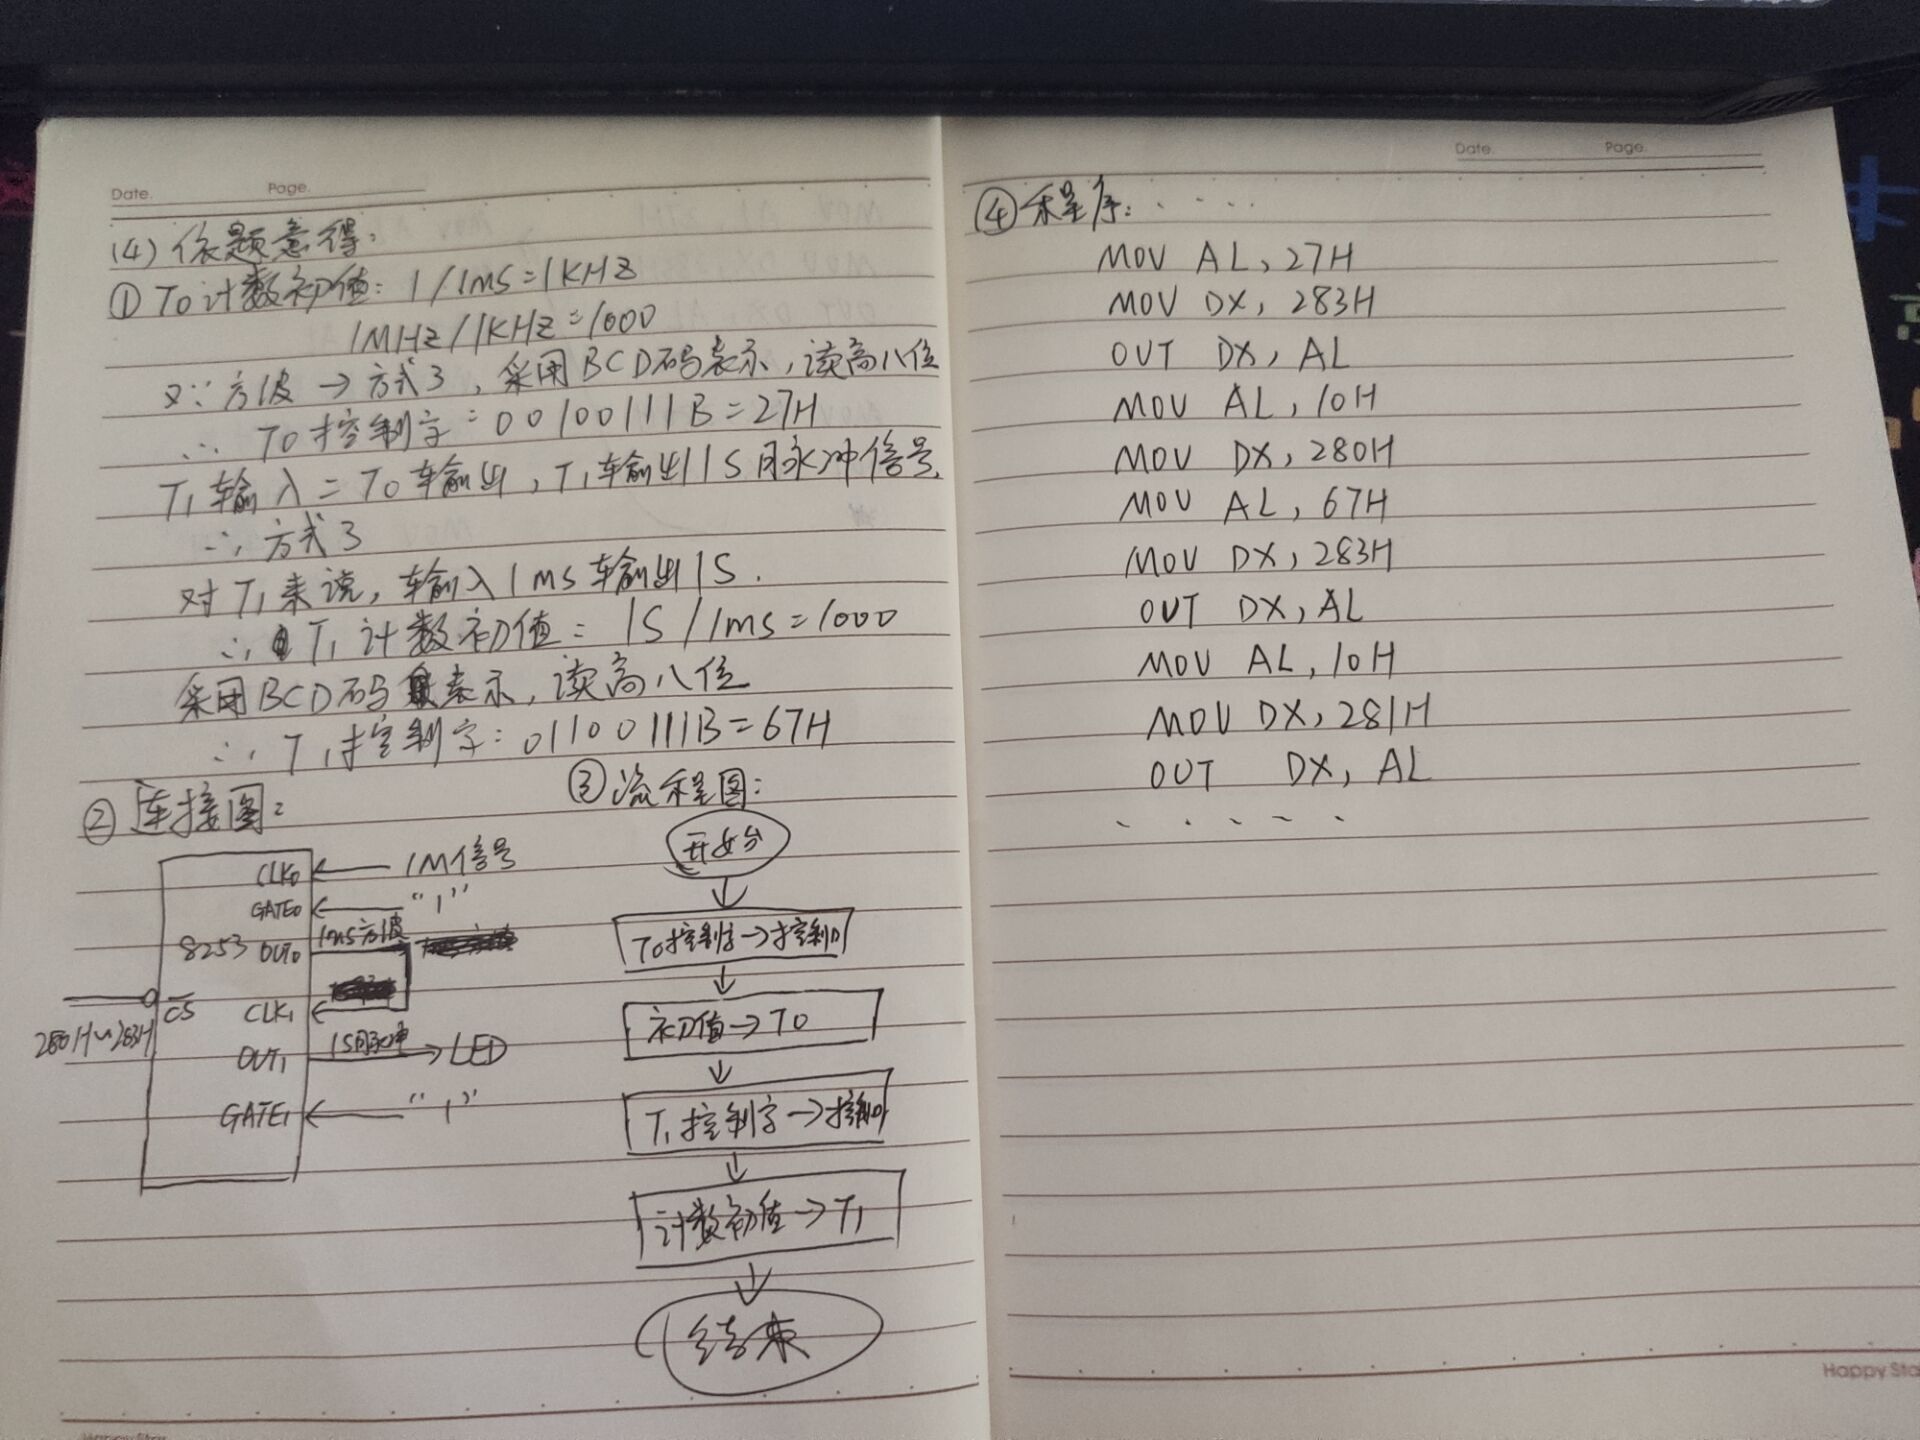 Date. Page.
(4) 依题意得:
① T0计数初值: 1/1ms=1KHZ
1MHz/1KHZ=1000
又∵方波→方式3,采用BCD码表示,读高八位
∴ T0控制字=00100111B=27H
T1输入=T0输出,T1输出1S脉冲信号.
∴方式3
对T1来说,输入1ms输出1S.
∴T1计数初值: 1S/1ms=1000
采用BCD码表示,读高八位
∴T1控制字: 01100111B=67H
② 连接图:
CLK0 1M信号
GATE0 "1"
8253 OUT0 1ms方波
CS CLK1
280H~283H
OUT1 1S脉冲 LED
GATE1 "1"
③ 流程图:
开始
T0控制字→控制口
初值→T0
T1控制字→控制口
计数初值→T1
结束
Date. Page.
④ 程序: ....
MOV AL, 27H
MOV DX, 283H
OUT DX, AL
MOV AL, 10H
MOV DX, 280H
MOV AL, 67H
MOV DX, 283H
OUT DX, AL
MOV AL, 10H
MOV DX, 281H
OUT DX, AL
.....
Happy Sta